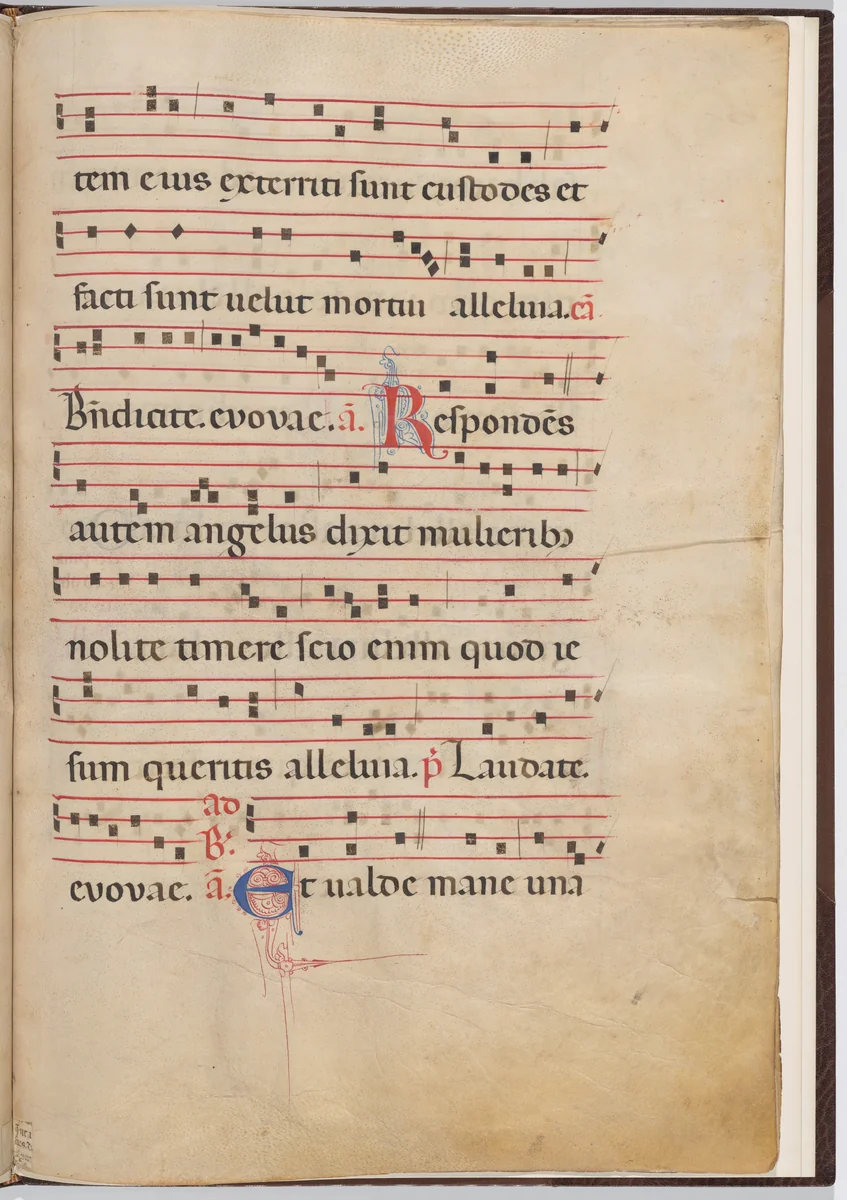 tem eius exterriti sunt custodes et
facti sunt uelut mortui alleluia. cā
Bn̄dicite. evovae. ā. Respondēs
autem angelus dixit mulieribꝫ
nolite timere scio enim quod ie
sum queritis alleluia. p̄ Laudate.
ad
evovae. B̄. ā. Et ualde mane una